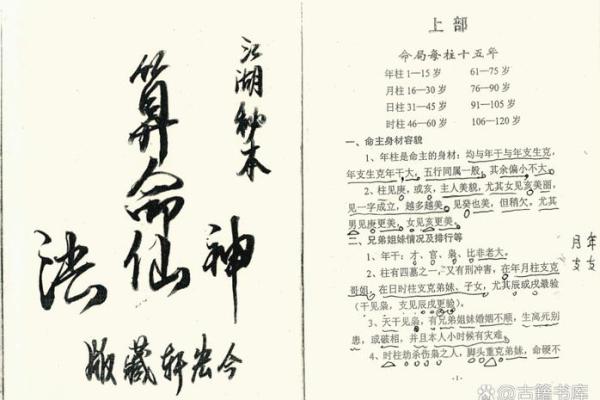 江湖秘本
神
算命仙
法
今轩藏版
上部
命局每柱十五年
年柱 1—15 岁 61—75 岁
月柱 16—30 岁 76—90 岁
日柱 31—45 岁 91—105 岁
时柱 46—60 岁 106—120 岁
一、命主身材容貌
1、年柱是命主的身材：均与年干与年支生克，
年支生克年干大，五行同属一般，其余偏小不大。
2、柱见庚，或亥，主人美貌，尤其女见亥美丽，
见一字成立，越多越美。见癸也美，但稍欠，尤其
男见庚更美，女见亥更美。
二、兄弟姐妹情况及排行等
1、年干：才、官、枭、比非老大。
2、柱有四墓之一，又有刑冲害，在年月柱支克
哥姐，在日时柱支克弟妹、子女，尤其辰或戌最验
（干见枭，支见辰戌更验）。
3、天干见枭，有兄弟姐妹婚姻不顺，生离死别
患，或破相，并且本人小时候有灾难。
4、时柱劫杀伤枭之人，脚头重克弟妹，命硬不
·1·
年支
月支
古籍书库